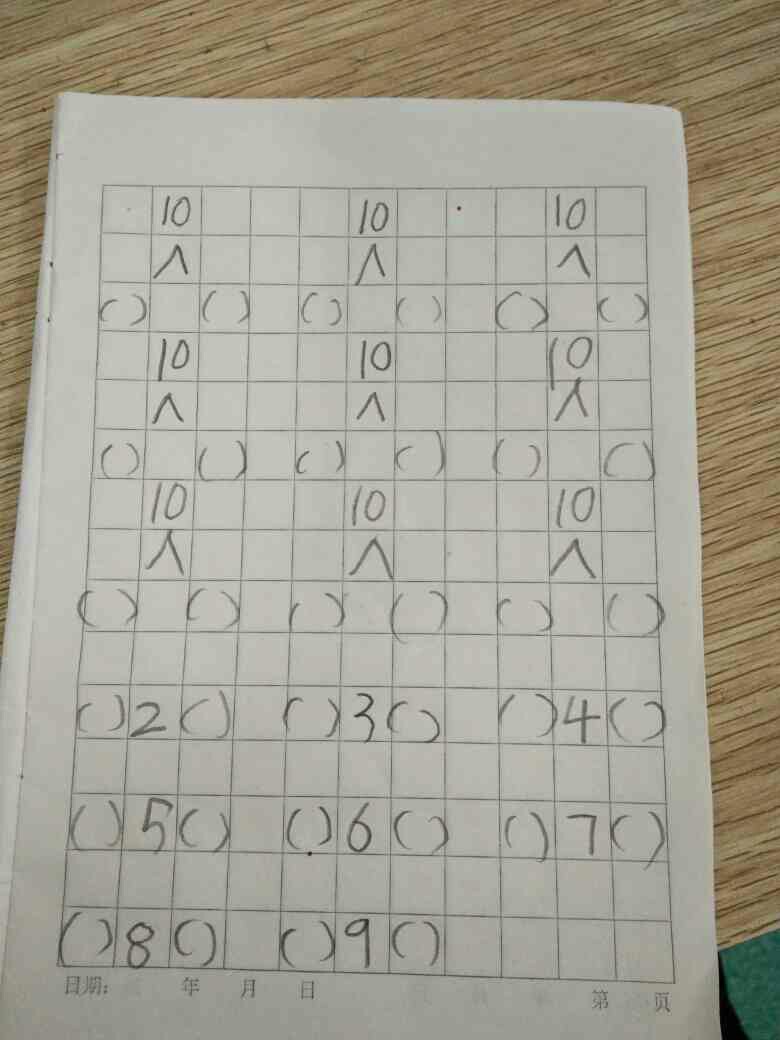 10 10 10
∧ ∧ ∧
( ) ( ) ( ) ( ) ( ) ( )
10 10 10
∧ ∧ ∧
( ) ( ) ( ) ( ) ( ) ( )
10 10 10
∧ ∧ ∧
( ) ( ) ( ) ( ) ( ) ( )
( ) 2 ( ) ( ) 3 ( ) ( ) 4 ( )
( ) 5 ( ) ( ) 6 ( ) ( ) 7 ( )
( ) 8 ( ) ( ) 9 ( )
日期: 年 月 日 第 页